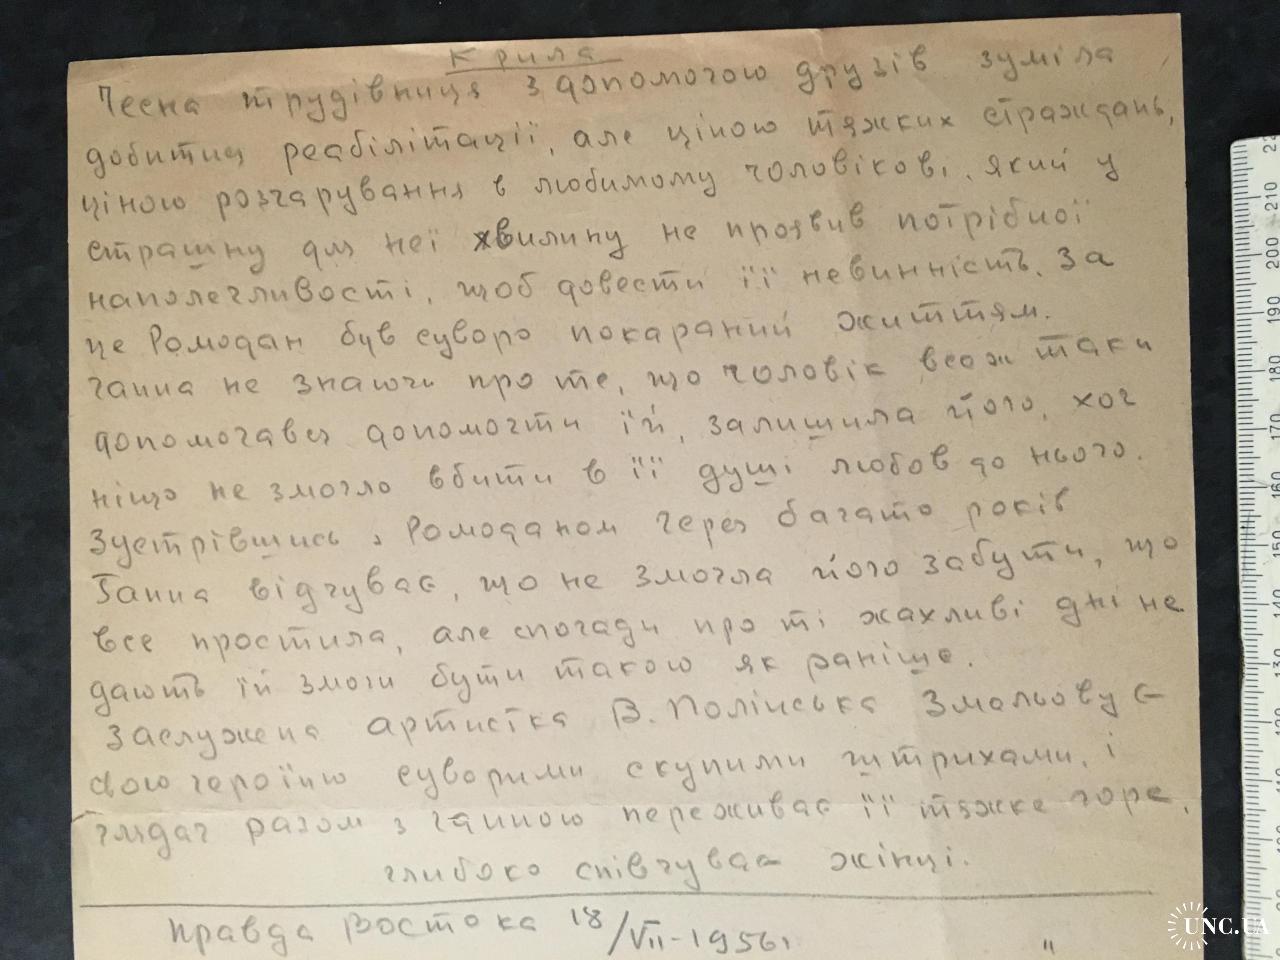 Крила
Чесна трудівниця з допомогою друзів зуміла
добитися реабілітації, але ціною тяжких страждань,
ціною розчарування в любимому чоловікові, який у
страшну для неї хвилину не проявив потрібної
наполегливості, щоб довести її невинність. За
це Ромодан був суворо покараний життям.
Ганна не знаючи про те, що чоловік всеж таки
допомогти їй, залишила його, хоч
ніщо не змогло вбити в її душі любов до нього.
Зустрівшись з Ромоданом через багато років
Ганна відчуває, що не змогла його забути, що
все простила, але спогади про ті жахливі дні не
дають їй змоги бути такою як раніше.
Заслужена артистка В. Полінська змальовує
свою героїню суворими скупими штрихами, і
глядач разом з Ганною переживає її тяжке горе,
глибоко співчуває жінці.
Правда Востока 18/VII-1956 г.
"
22
210
200
190
180
170
160
150
140
130
120
110
UNC.UA